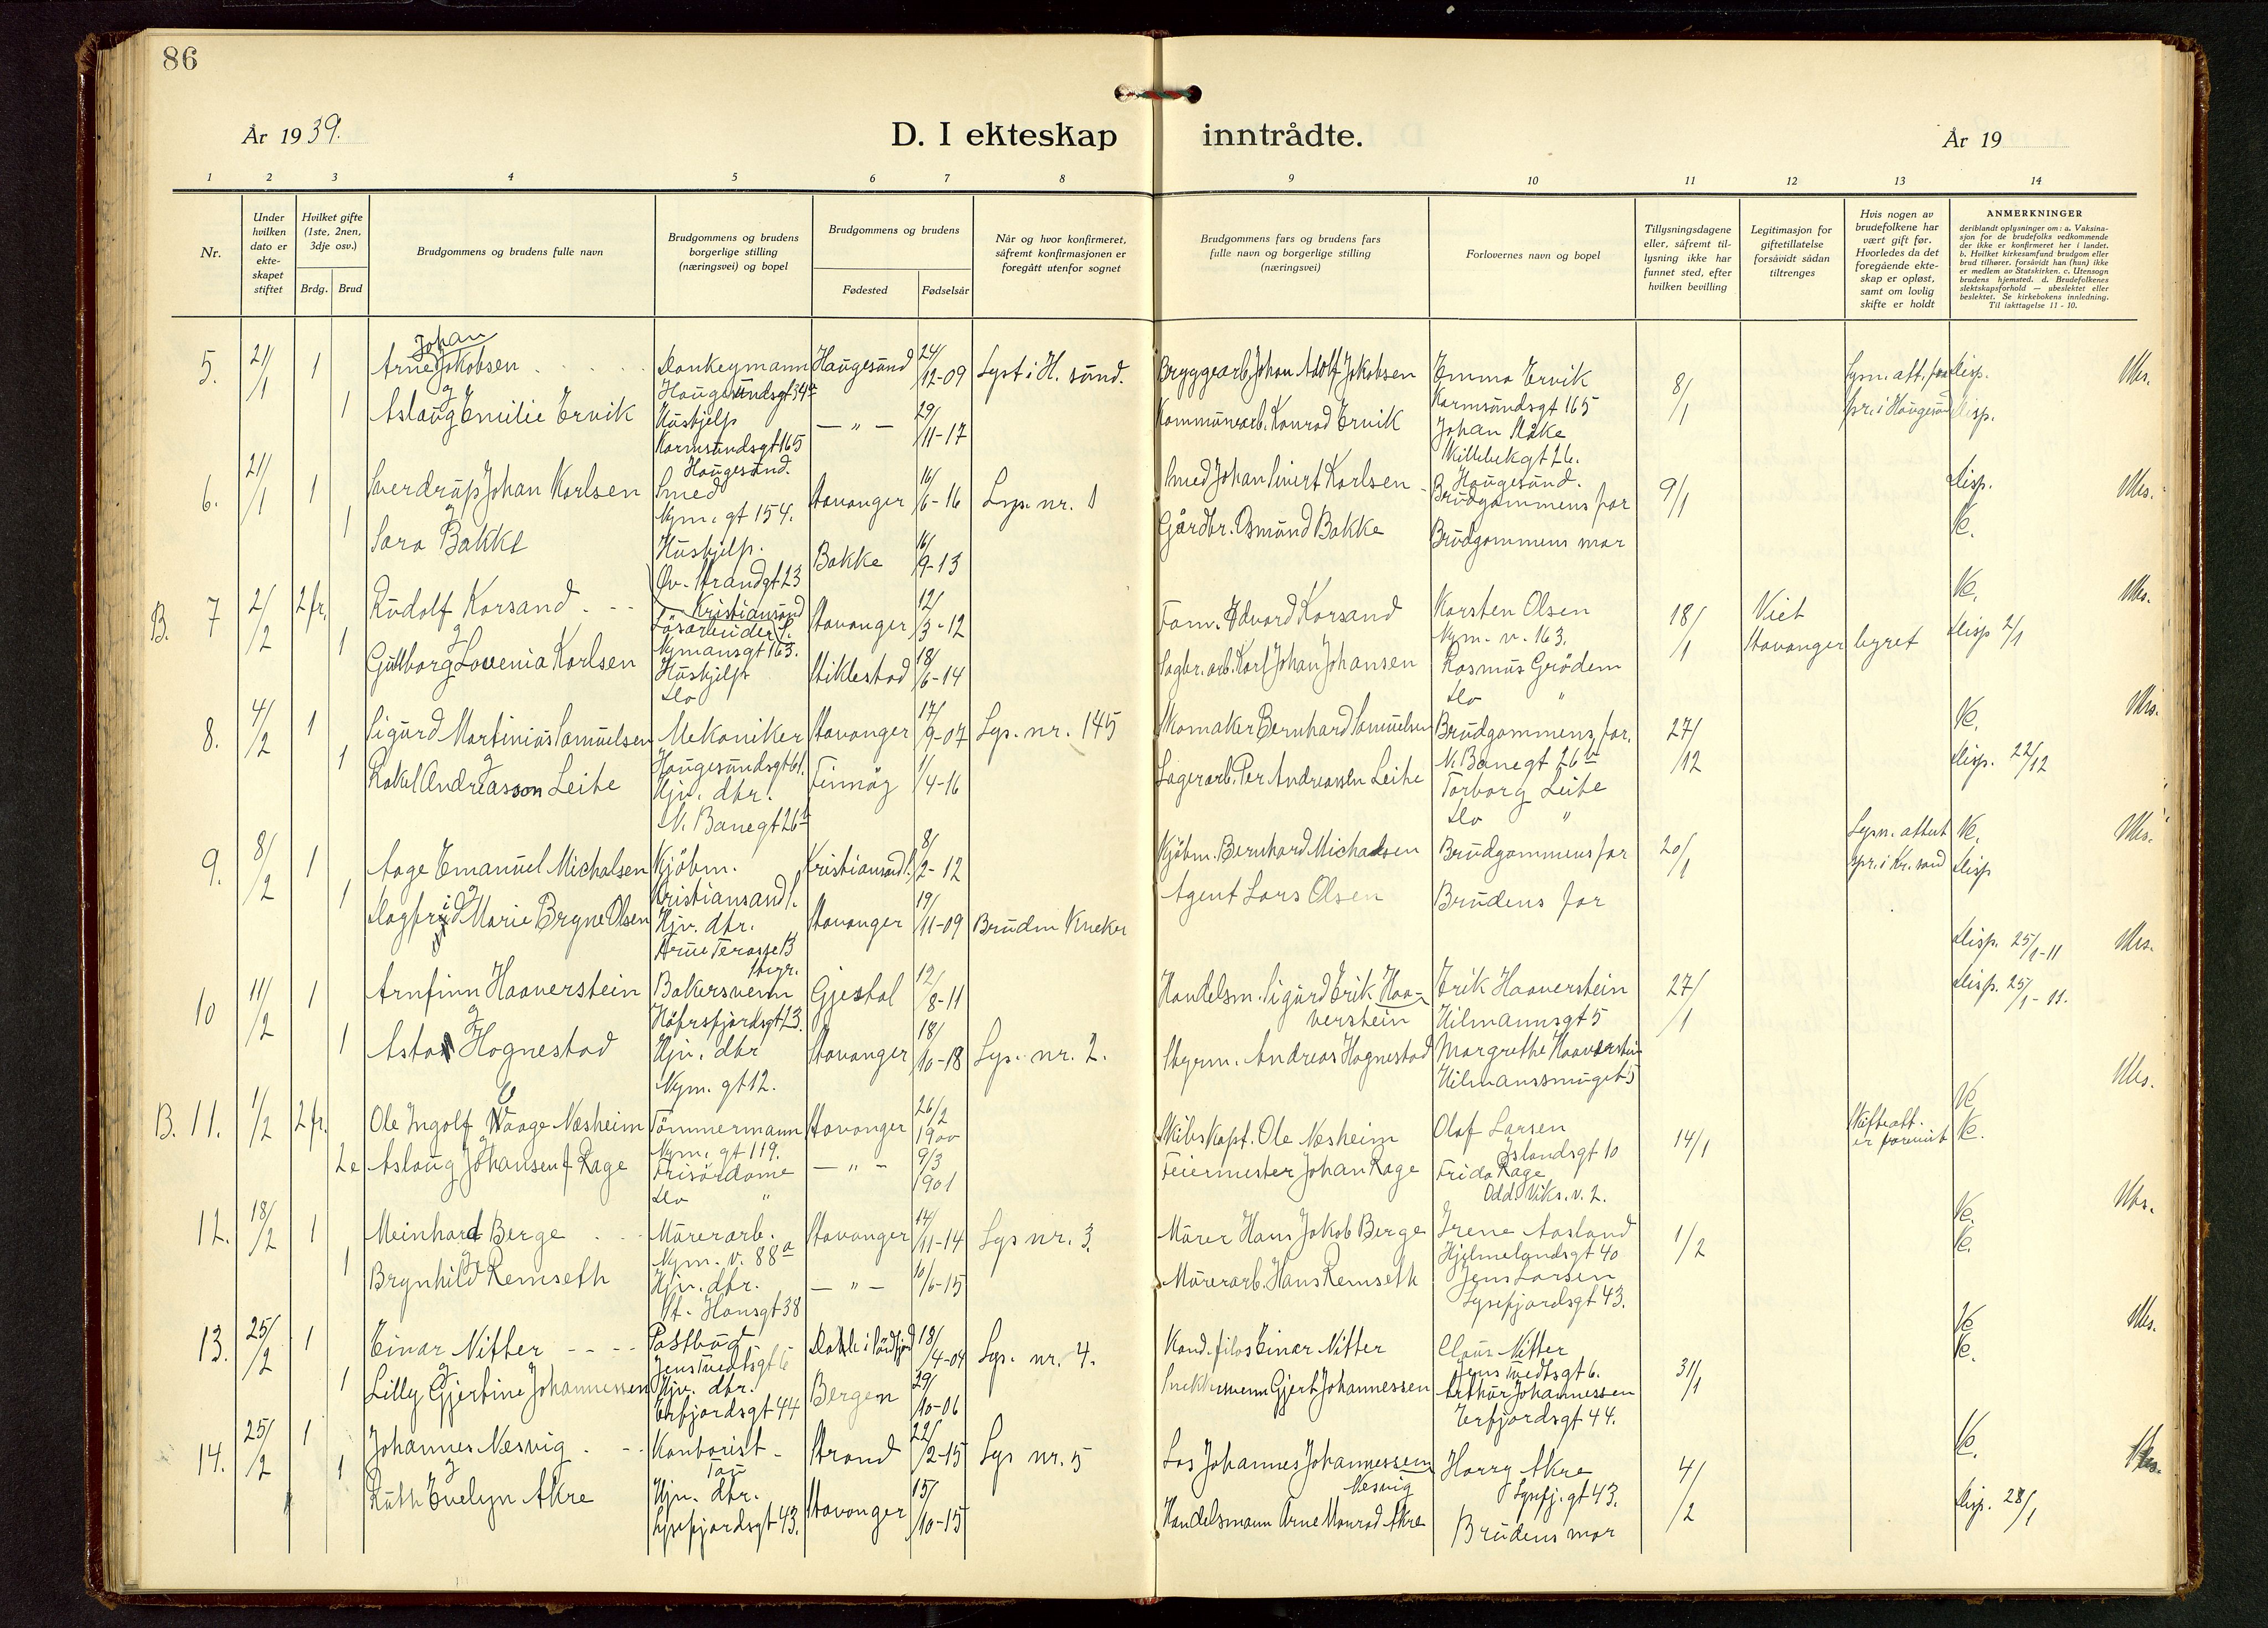 86
År 1939.
D. I ekteskap inntrådte.
År 19
1 2 3 4 5 6 7 8 9 10 11 12 13 14
Nr.
Under hvilken dato er ekteskapet stiftet
Hvilket gifte (1ste, 2nen, 3dje osv.)
Brdg. Brud
Brudgommens og brudens fulle navn
Brudgommens og brudens borgerlige stilling (næringsvei) og bopel
Brudgommens og brudens
Fødested
Fødselsår
Når og hvor konfirmeret, såfremt konfirmasjonen er foregått utenfor sognet
Brudgommens fars og brudens fars fulle navn og borgerlige stilling (næringsvei)
Forlovernes navn og bopel
Tillysningsdagene eller, såfremt tillysning ikke har funnet sted, efter hvilken bevilling
Legitimasjon for giftetillatelse forsåvidt sådan tiltrenges
Hvis nogen av brudefolkene har vært gift før. Hvorledes da det foregående ekteskap er opløst, samt om lovlig skifte er holdt
ANMERKNINGER
deriblandt oplysninger om: a. Vaksinasjon for de brudefolks vedkommende der ikke er konfirmeret her i landet. b. Hvilket kirkesamfund brudgom eller brud tilhører, forsåvidt han (hun) ikke er medlem av Statskirken. c. Utensogn brudens hjemsted. d. Brudefolkenes slektskapsforhold — ubeslektet eller beslektet. Se kirkebokens innledning. Til iakttagelse 11 - 10.
5. 21/1 1 Arne Johan Jokobsen Donkeymann Haugesund 24/12-09 Lyst i H. sund. Bryggearb. Johan Adolf Jakobsen Emma Ervik 8/1 Disp.
g Haugesundsgt 54 Karmsundsgt 165
1 Aslaug Emilie Ervik Hushjelp — " — 29/11-17 Kommunearb. Konrad Ervik Johan Måke Disp.
Karmsundsgt 165
Haugesund. Haugesund.
6. 21/1 1 Sverdrup Johan Karlsen Smed Stavanger 16/6-16 Lys. nr. 1 Smed Johan Sivert Karlsen Brudgommens far 9/1 Disp.
g Nym. gt 154.
1 Sara Bakke Hushjelp. Bakke 16/9-13 Gårdbr. Osmund Bakke Brudgommens mor
Øv. Strandgt 23
Kristiansand
B. 7 2/2 2 fr. Rudolf Korsand Løsarbeider Stavanger 12/3-12 Fom. Edvard Korsand Karsten Olsen 18/1 Viet
g Nymansgt 163. Nym. v. 163. Stavanger byret Disp 2/1
1 Gullborg Lovenia Karlsen Hushjelp Stiklestad 18/6-14 Sagbr. arb. Karl Johan Johansen Rasmus Grødem
Do Do "
8. 4/2 1 Sigurd Martinius Samuelsen Mekaniker Stavanger 17/9-07 Lys. nr. 145 Skomaker Bernhard Samuelsen Brudgommens far. 27/12
g Haugesundsgt 61. N. Banegt 26
1 Rakel Andreasson Leite Hjv. dtr. Finnøy 1/4-16 Lagerarb. Per Andreassen Leite Torborg Leite Disp. 22/12
N. Banegt 26 Do "
9. 8/2 1 Aage Emanuel Michalsen Kjøbm. Kristiansand S. 8/2-12 Kjøbm. Bernhard Michaelsen Brudgommens far 20/1 Lysn. attest
g Kristiansand S. spr. i Kr. sand Disp
1 Dagfrid Marie Bryne Olsen Hjv. dtr. Stavanger 19/11-09 Agent Lars Olsen Brudens far
Arne Terasse 13
10 11/2 1 Arnfinn Haaverstein Bakersvenn Gjestal 12/8-11 Handelsm. Sigurd Erik Haaverstein Erik Haaverstein 27/1 Disp. 25/1-11
g Høfrsfjordsgt 23. Hilmannsgt 5 Disp. 25/1-11.
1 Asta Hognestad Hjv. dtr Stavanger 18/10-18 Lys. nr. 2. Styrm. Andreas Hognestad Margrethe Haaverstein
Nym. gt 12.
B. 11. 1/2 2 fr. Ole Ingolf Vaage Næsheim Tømmermann Stavanger 26/2 1900 Skibskapt. Ole Næsheim Olaf Larsen 14/1 Skifteatt.
g Nym. gt 119. Islandsgt 10
2 e Aslaug Johansen f. Rage Frisørdame — " — 9/3 1901 Feiermester Johan Rage Frida Rage
Do " Odd. Viks. v. 2.
12. 18/2 1 Meinhard Berge Murerarb. Stavanger 14/11-14 Lys nr. 3. Murer Hans Jakob Berge Irene Aasland 1/2
Nym. v. 88a Hjelmelandsgt 40
1 Brynhild Remseth Hjv. dtr. — " — 10/6-15 Murerarb. Hans Remseth Jens Larsen
St. Hansgt 38 Lysefjordsgt 43.
13. 25/2 1 Einar Nitter Postbud 18/4-04 Lys. nr. 4. Kand. filos Einar Nitter Claus Nitter 31/1
g Jens Tvedtsgt 6 Jens Tvedtsgt 6.
1 Lilly Gjertine Johannessen Hjv. dtr. Bergen 29/10-06 Snekkersvenn Gjert Johannessen Arthur Johannessen
Erfjordsgt 44 Erfjordsgt 44.
14. 25/2 1 Johannes Nesvig Kontorist Strand 22/2-15 Lys nr. 5 Los Johannes Johannessen Nesvig Harry Akre 4/2
g Tau Lysefj. gt 43.
1 Ruth Evelyn Akre Hjv. dtr. Stavanger 15/10-15 Handelsmann Arne Monrad Akre Brudens mor Disp. 28/1
Lysefjordsgt 43.